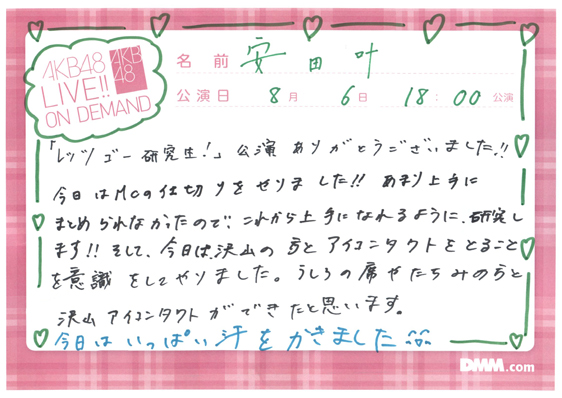 AKB48
LIVE!!
ON DEMAND
AKB
48
名前 安田叶
公演日 8月 6日 18:00 公演
「レッツゴー研究生!」公演 ありがとうございました!!
今日はMCの仕切りをやりました!! あまり上手に
まとめられなかったので、これから上手になれるように、研究し
ます!! そして、今日は、沢山の方とアイコンタクトをとること
を意識をしてやりました。うしろの席やたちみの方と
沢山アイコンタクトができたと思います。
今日はいっぱい汗をかきました
DMM.com